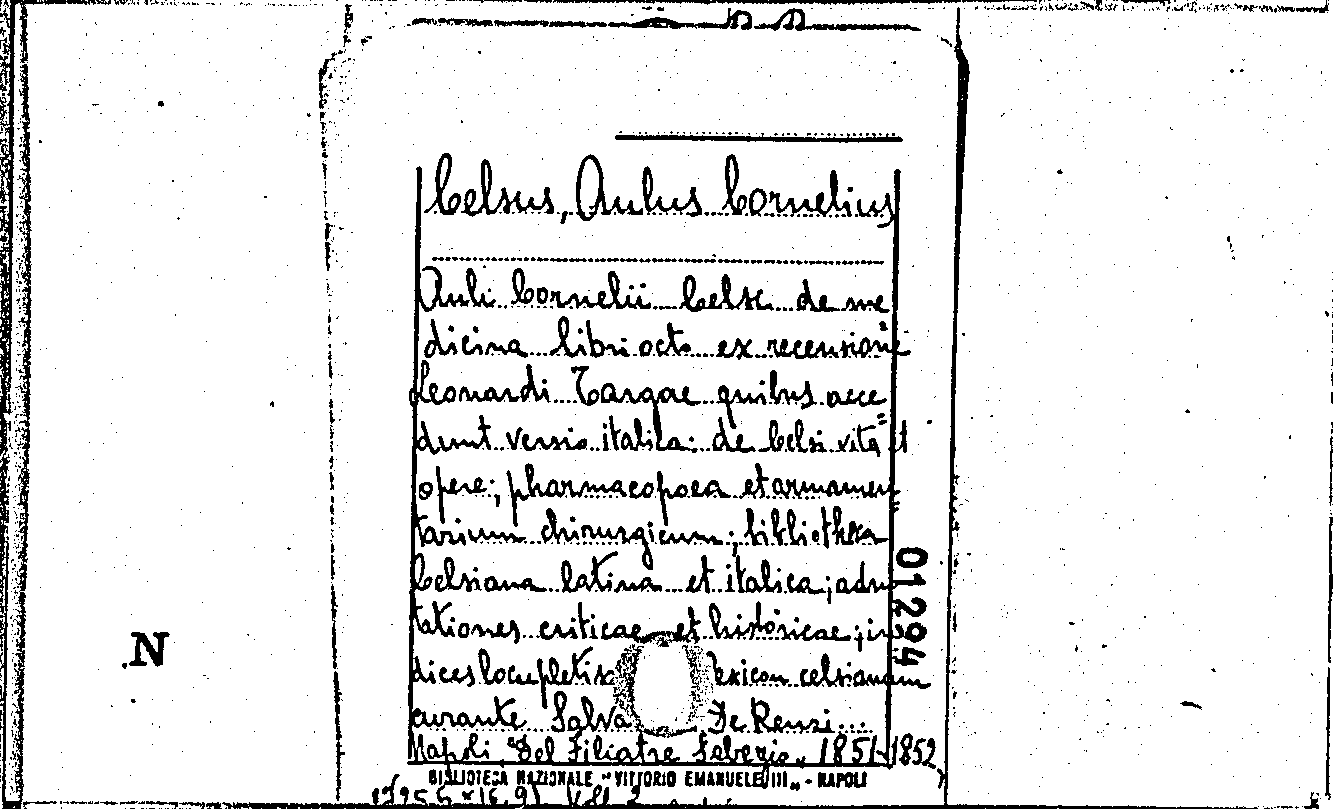 Celsus, Aulus Cornelius
Auli Cornelii Celsi de me
dicina libri octo ex recensione
Leonardi Targae quibus acce
dunt versio italica: de Celsi vita et
opere; pharmacopoea et armamen
tarium chirurgicum; bibliotheca
Celsiana latina et italica; adno
tationes criticae et historicae; in
dices locupletis lexicon celsianum
curante Salva De Renzi...
Napoli Del Filiatre Sebezio, 1851-1852,
BIBLIOTECA NAZIONALE "VITTORIO EMANUELE III" - NAPOLI
Voll. 2
01294
N